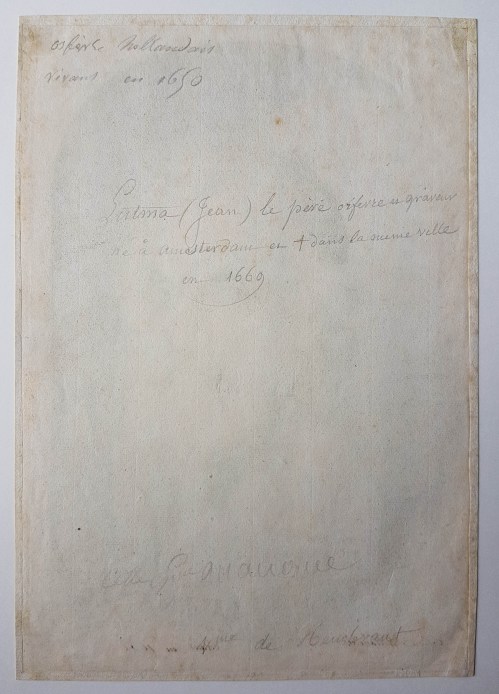 hollandais
vivant en 1650
Lutma (Jean) le père orfevre et graveur
né à amsterdam et † dans la meme ville
en 1669
manque
de Rembrant